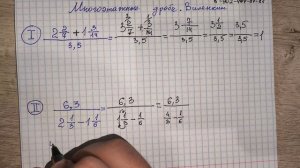 Многоэтажные дроби. Виленкин
I) (2 2/7 + 1 3/14) / 3,5 = (3 2/7 + 3/14) / 3,5 = 3 7/14 / 3,5 = 3 1/2 / 3,5 = 3,5 / 3,5 = 1
II) 6,3 / (2 1/3 - 1 1/6) = 6,3 / (1 1/3 - 1/6) = 6,3 / (4/3 - 1/6)